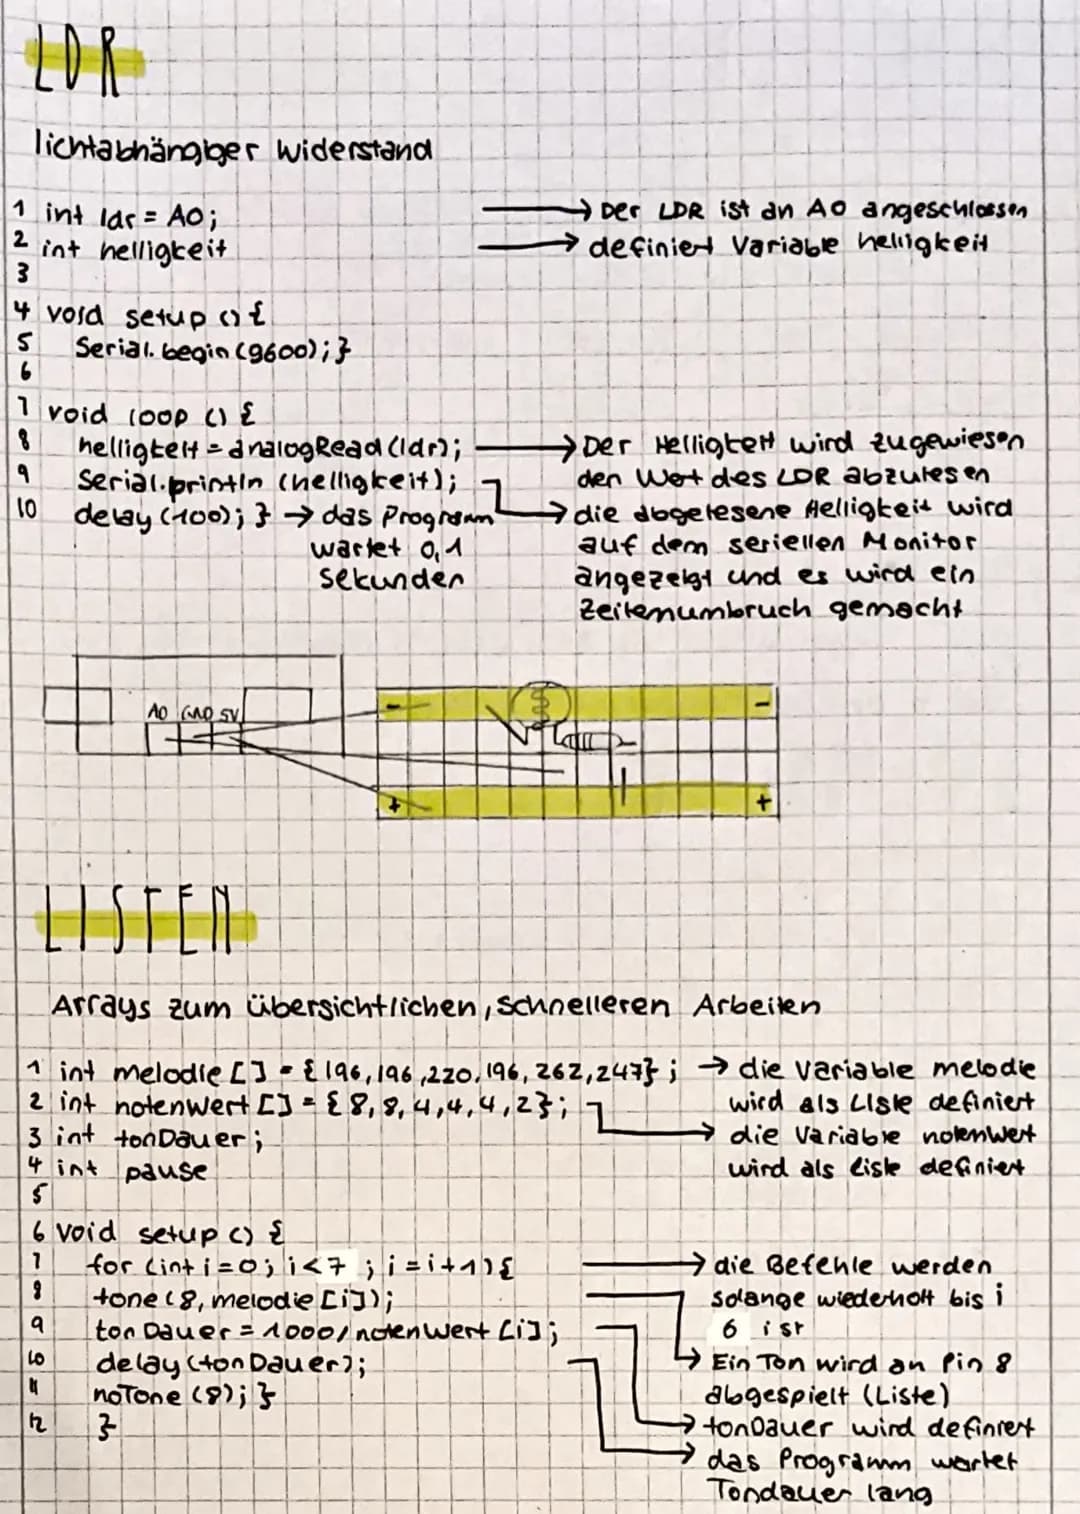 LDR
lichtabhängiger Widerstand
1 int ldr = A0; → Der LDR ist an A0 angeschlossen
2 int helligkeit → definiert Variable helligkeit
3
4 void setup () {
5 Serial.begin (9600); }
6
7 void loop () {
8 helligkeit = analogRead (ldr); → Der Helligkeit wird zugewiesen
den Wert des LDR abzulesen
9 Serial.println (helligkeit); → die abgelesene Helligkeit wird
auf dem seriellen Monitor
angezeigt und es wird ein
Zeilenumbruch gemacht
10 delay (100); } → das Programm
wartet 0,1
Sekunden
A0 GND 5V
- -
+ +
LISTEN
Arrays zum übersichtlichen, schnelleren Arbeiten
1 int melodie [] = {196, 196, 220, 196, 262, 247}; → die Variable melodie
wird als Liste definiert
2 int notenwert [] = {8, 8, 4, 4, 4, 2}; → die Variable notenwert
wird als Liste definiert
3 int tonDauer;
4 int pause
5
6 void setup () {
7 for (int i = 0; i < 7 ; i = i + 1) { → die Befehle werden
solange wiederholt bis i
6 ist
8 tone (8, melodie [i]); → Ein Ton wird an Pin 8
abgespielt (Liste)
9 tonDauer = 1000 / notenwert [i]; → tonDauer wird definiert
10 delay (tonDauer); → das Programm wartet
Tondauer lang
11 noTone (8); }
12 }